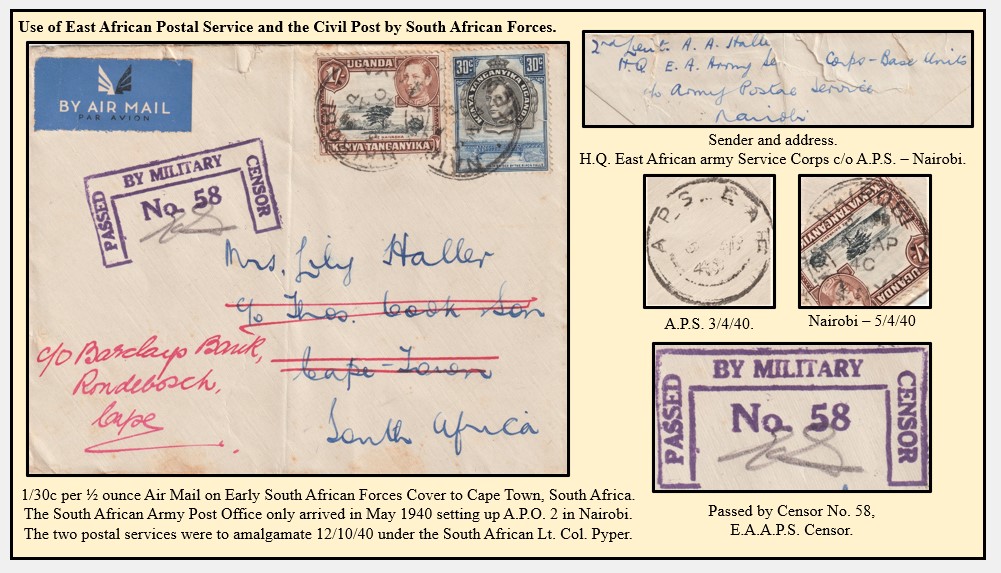 Use of East African Postal Service and the Civil Post by South African Forces.
BY AIR MAIL
PAR AVION
UGANDA
1/-
KENYA TANGANYIKA
30c
30c
KENYA TANGANYIKA UGANDA
PASSED
BY MILITARY
CENSOR
No. 58
Mrs. Lily Haller
c/o Thos. Cook Son
Cape-Town
South Africa
c/o Barclays Bank,
Rondebosch,
Cape
2nd Lieut. A. A. Haller
H.Q. E.A. Army Se Corps-Base Units
c/o Army Postal Service
Nairobi
Sender and address.
H.Q. East African army Service Corps c/o A.P.S. – Nairobi.
A.P.S. 3/4/40.
Nairobi – 5/4/40
PASSED
BY MILITARY
CENSOR
No. 58
Passed by Censor No. 58,
E.A.A.P.S. Censor.
1/30c per ½ ounce Air Mail on Early South African Forces Cover to Cape Town, South Africa.
The South African Army Post Office only arrived in May 1940 setting up A.P.O. 2 in Nairobi.
The two postal services were to amalgamate 12/10/40 under the South African Lt. Col. Pyper.